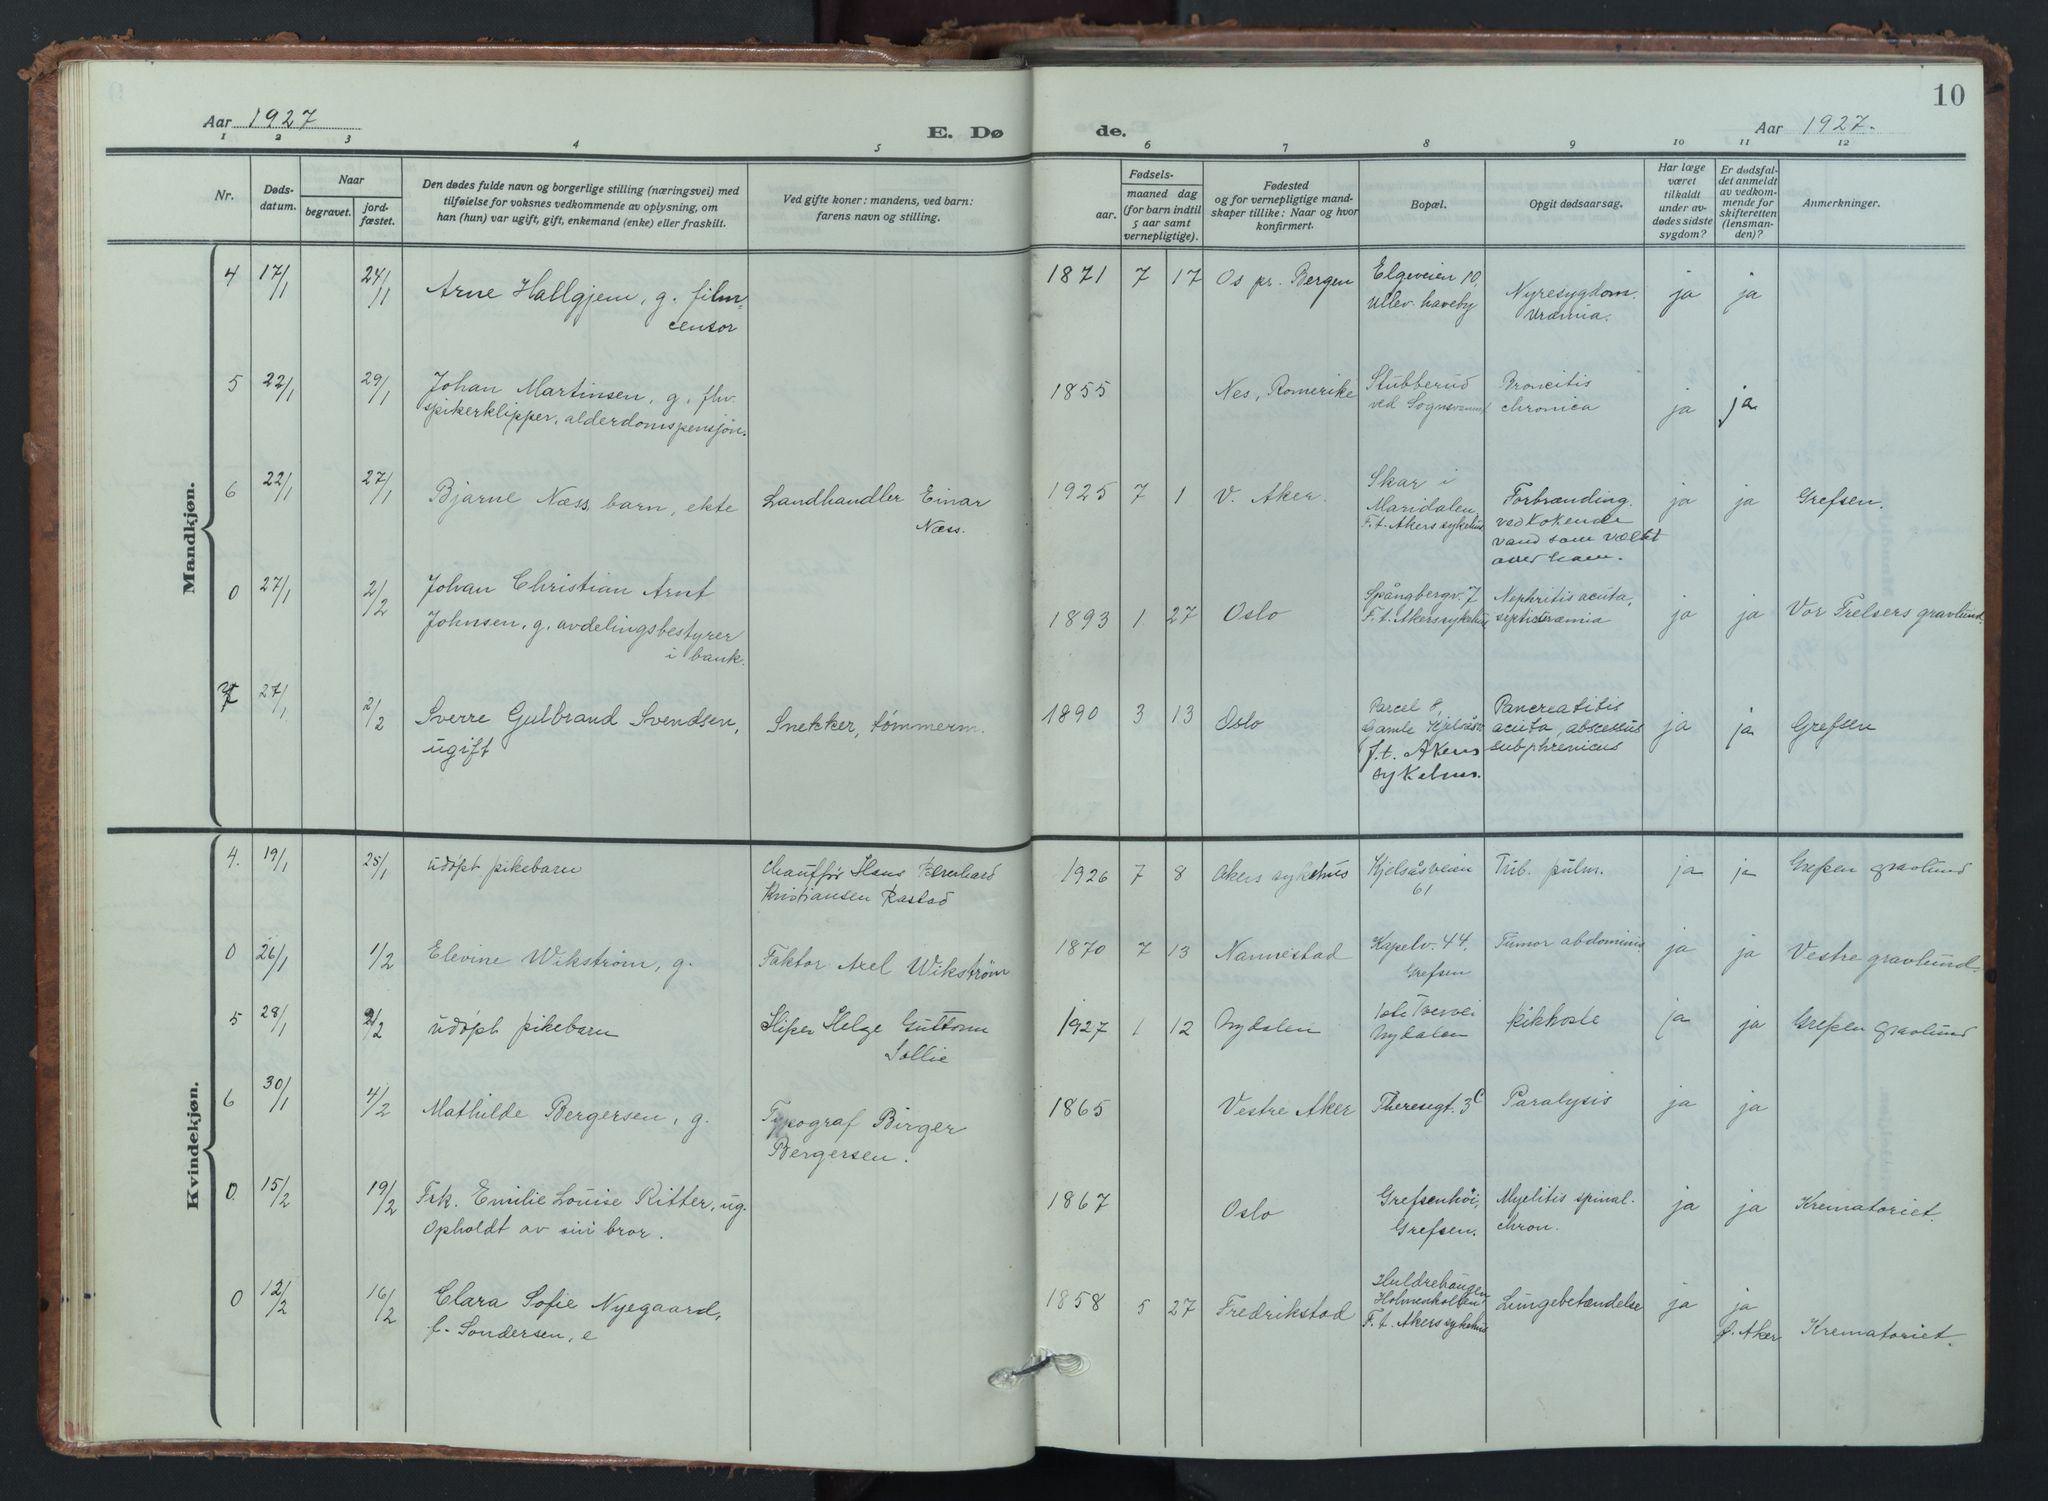 10
Aar 1927
E. Dø
de.
Aar 1927.
1 2 3 4 5 6 7 8 9 10 11 12
Nr.
Døds-
datum.
Naar
begravet.
jord-
fæstet.
Den dødes fulde navn og borgerlige stilling (næringsvei) med
tilføielse for voksnes vedkommende av oplysning, om
han (hun) var ugift, gift, enkemand (enke) eller fraskilt.
Ved gifte koner: mandens, ved barn:
farens navn og stilling.
Fødsels-
aar.
maaned dag
(for barn indtil
5 aar samt
vernepligtige).
Fødested
og for vernepligtige mand-
skaper tillike: Naar og hvor
konfirmert.
Bopæl.
Opgit dødsaarsag.
Har læge
været
tilkaldt
under av-
dødes sidste
sygdom?
Er dødsfal-
det anmeldt
av vedkom-
mende for
skifteretten
(lensman-
den)?
Anmerkninger.
Mandkjøn.
4 17/1 24/11 Arne Hallgjem, g. film-
censor
1871 7 17 Os pr. Bergen
Elgeveien 10,
Ullev. haveby
Nyresygdom.
Uræmia.
ja ja
5 22/1 29/1 Johan Martinsen, g. fhv.
spikerklipper, alderdomspensjon.
1855 Nes, Romerike
Stubberud
ved Sognsvannet
Broncitis
chronica
ja ja
6 22/1 27/1 Bjarne Næss, barn, ekte
Landhandler Einar
Næss.
1925 7 1 V. Aker.
Skar i
Maridalen,
F. t. Akers sykehus
Forbrænding
ved kokende
vand som væltet
over ham.
ja ja Grefsen.
0 27/1 2/2 Johan Christian Arnt
Johnsen, g. avdelingsbestyrer
i bank.
1893 1 27 Oslo
Spångbergv. 7
F. t. Akers sykehus
Nephritis acuta,
septicæmia
ja ja Vor Frelsers gravlund.
7 27/1 2/2 Sverre Gulbrand Svendsen,
ugift
Snekker, tømmerm.
1890 3 13 Oslo
Parcel 8,
Gamle Kjelsåsv.
f. t. Akers
sykehus.
Pancreatitis
acuta, abscessus
subphrenicus
ja ja Grefsen
Kvindekjøn.
4. 19/1 25/1 udøpt pikebarn
Chauffør Hans Bernhard
Kristiansen Rastad
1926 7 8 Akers sykehus
Kjelsåsveien
61
Tub. pulm.
ja ja Grefsen gravlund
0 26/1 1/2 Elevine Wikstrøm, g.
Faktor Axel Wikstrøm
1870 7 13 Nannestad
Kapelv. 44.
Grefsen
Tumor abdominis
ja ja Vestre gravlund.
5 28/1 2/2 udøpt pikebarn
Sliper Helge Guttorm
Sollie
1927 1 12 Nydalen
Nydalen
kikhoste
ja ja Grefsen gravlund
6 30/1 4/2 Mathilde Bergersen, g.
Typograf Birger
Bergersen.
1865 Vestre Aker
Theresegt. 3c
Paralysis
ja ja
0 15/2 19/2 Frk. Emilie Louise Ritter, ug.
Opholdt av sin bror.
1867 Oslo
Grefsenhøi,
Grefsen.
Myelitis spinal.
chron.
ja ja Krematoriet.
0 12/2 16/2 Clara Sofie Nyegaard,
f. Sondersen, e
1858 5 27 Fredrikstad
Huldrehaugen
Holmenkollen,
F. t. Akers sykehus
Lungebetændelse
ja ja
f. Aker
Krematoriet.